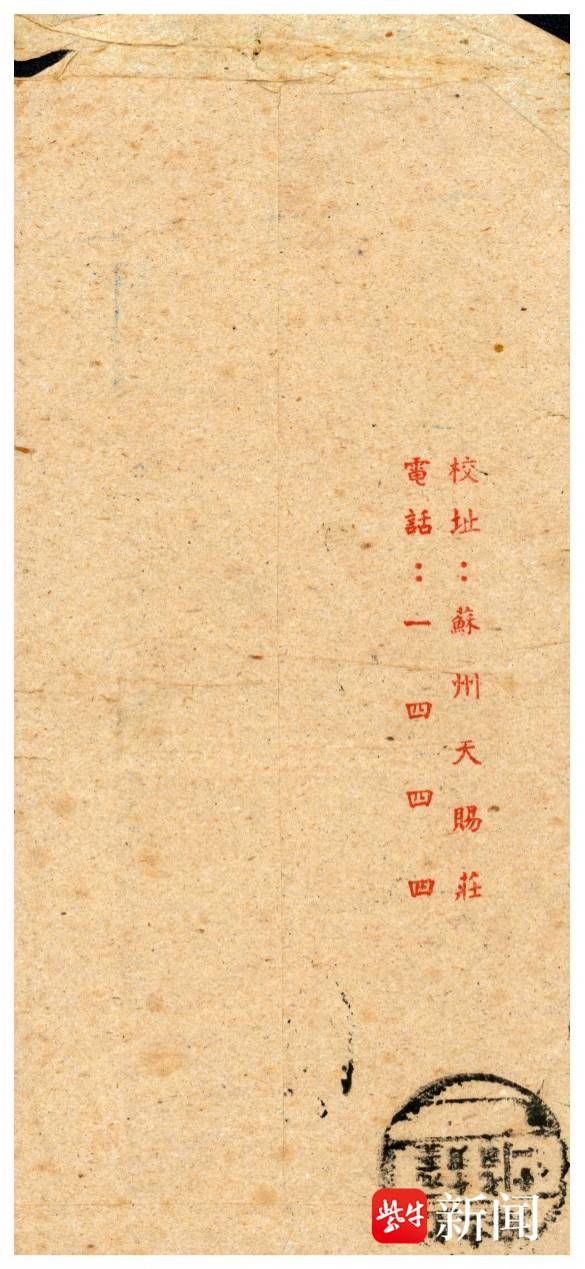 校址：蘇州天賜莊
電話：一四四四
紫牛新闻